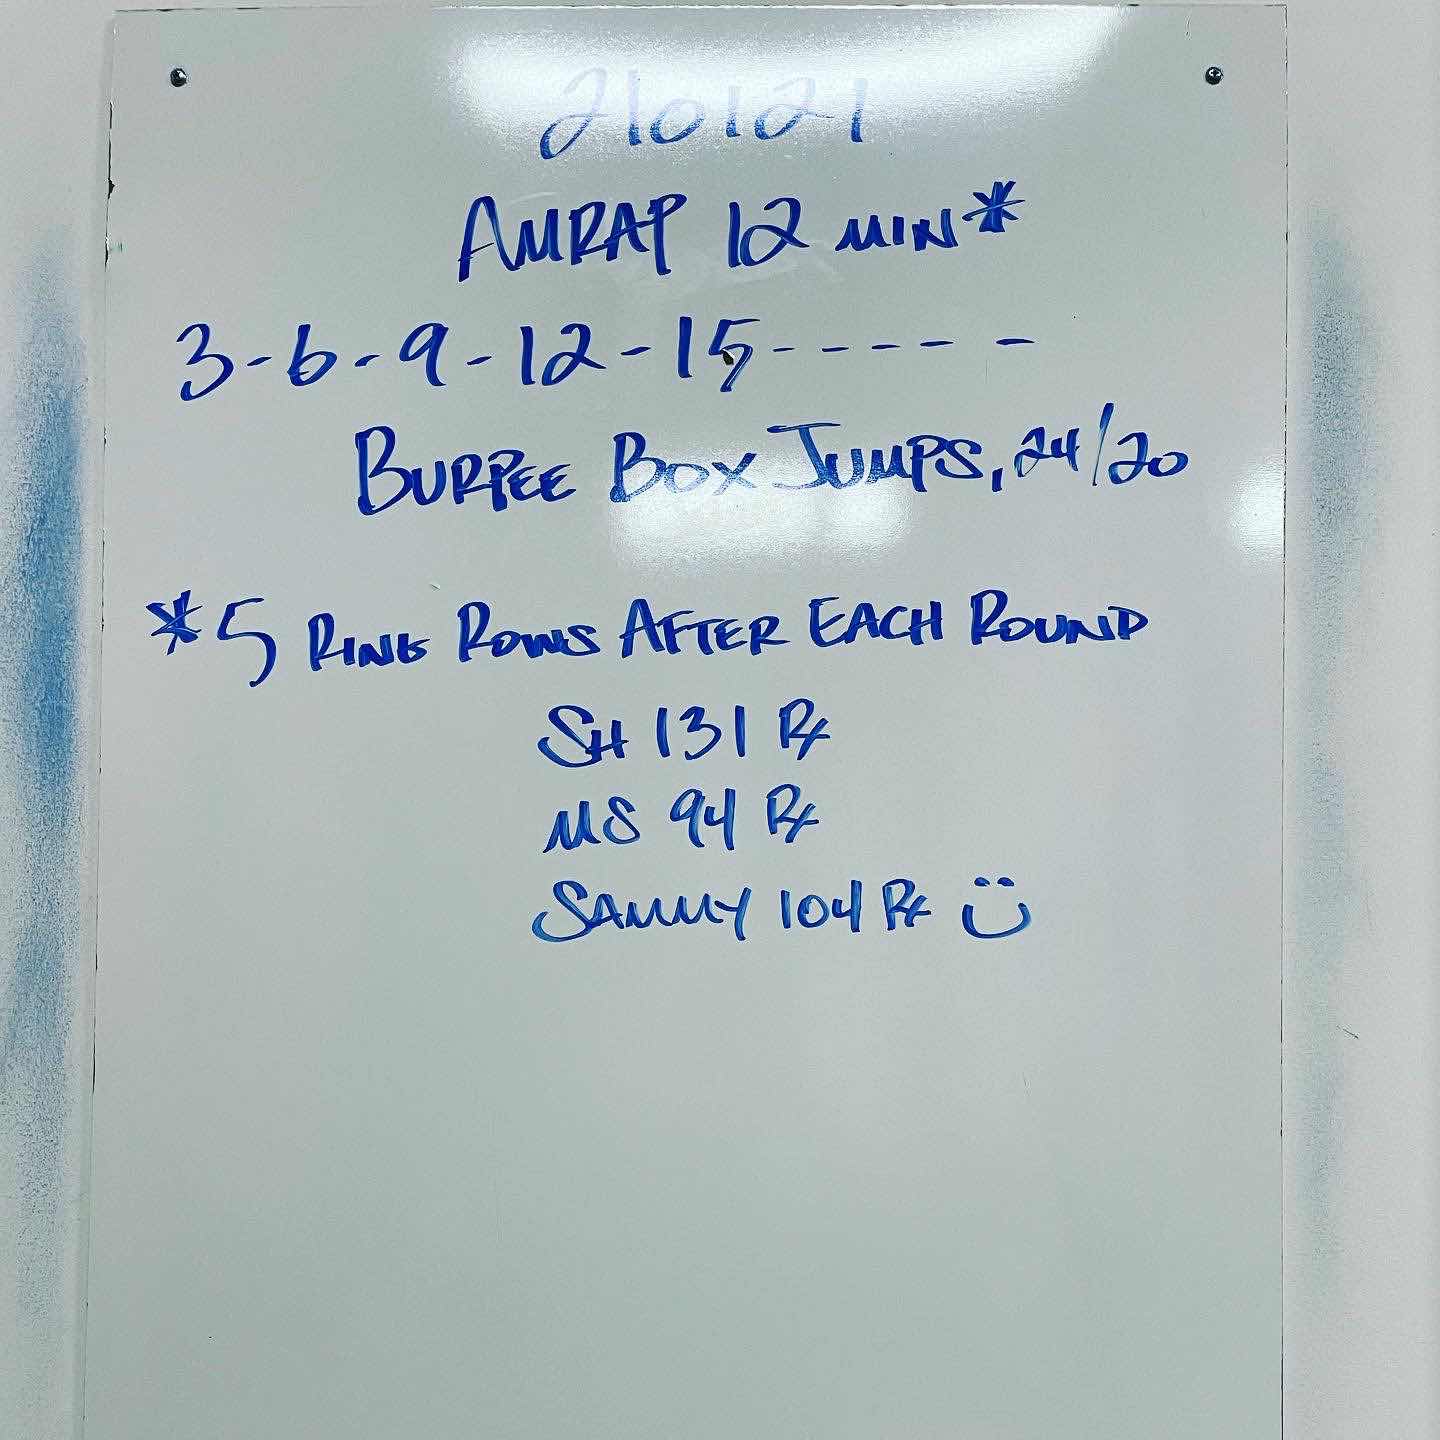 210121
AMRAP 12 MIN*
3-6-9-12-15------
BURPEE BOX JUMPS, 24/20
*5 RING ROWS AFTER EACH ROUND
SH 131 Rx
MS 94 Rx
SAMMY 104 Rx